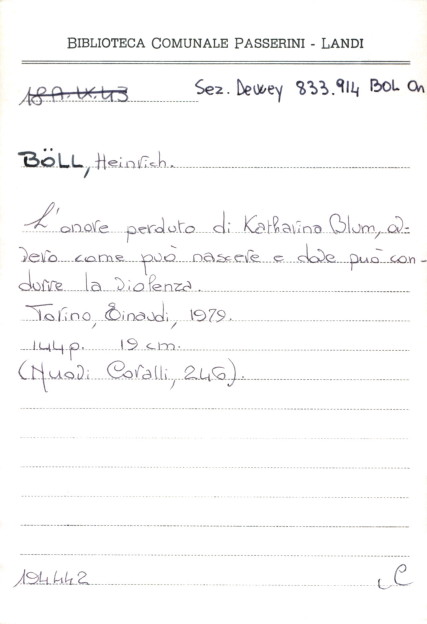 BIBLIOTECA COMUNALE PASSERINI - LANDI
18 A.IX.43 Sez. Dewey 833.914 BOL On
BÖLL, Heinrich.
L'onore perduto di Katharina Blum, ov=
vero come può nascere e dove può con-
durre la violenza.
Torino, Einaudi, 1979.
144 p. 19 cm.
(Nuovi Coralli, 246).
194442 C